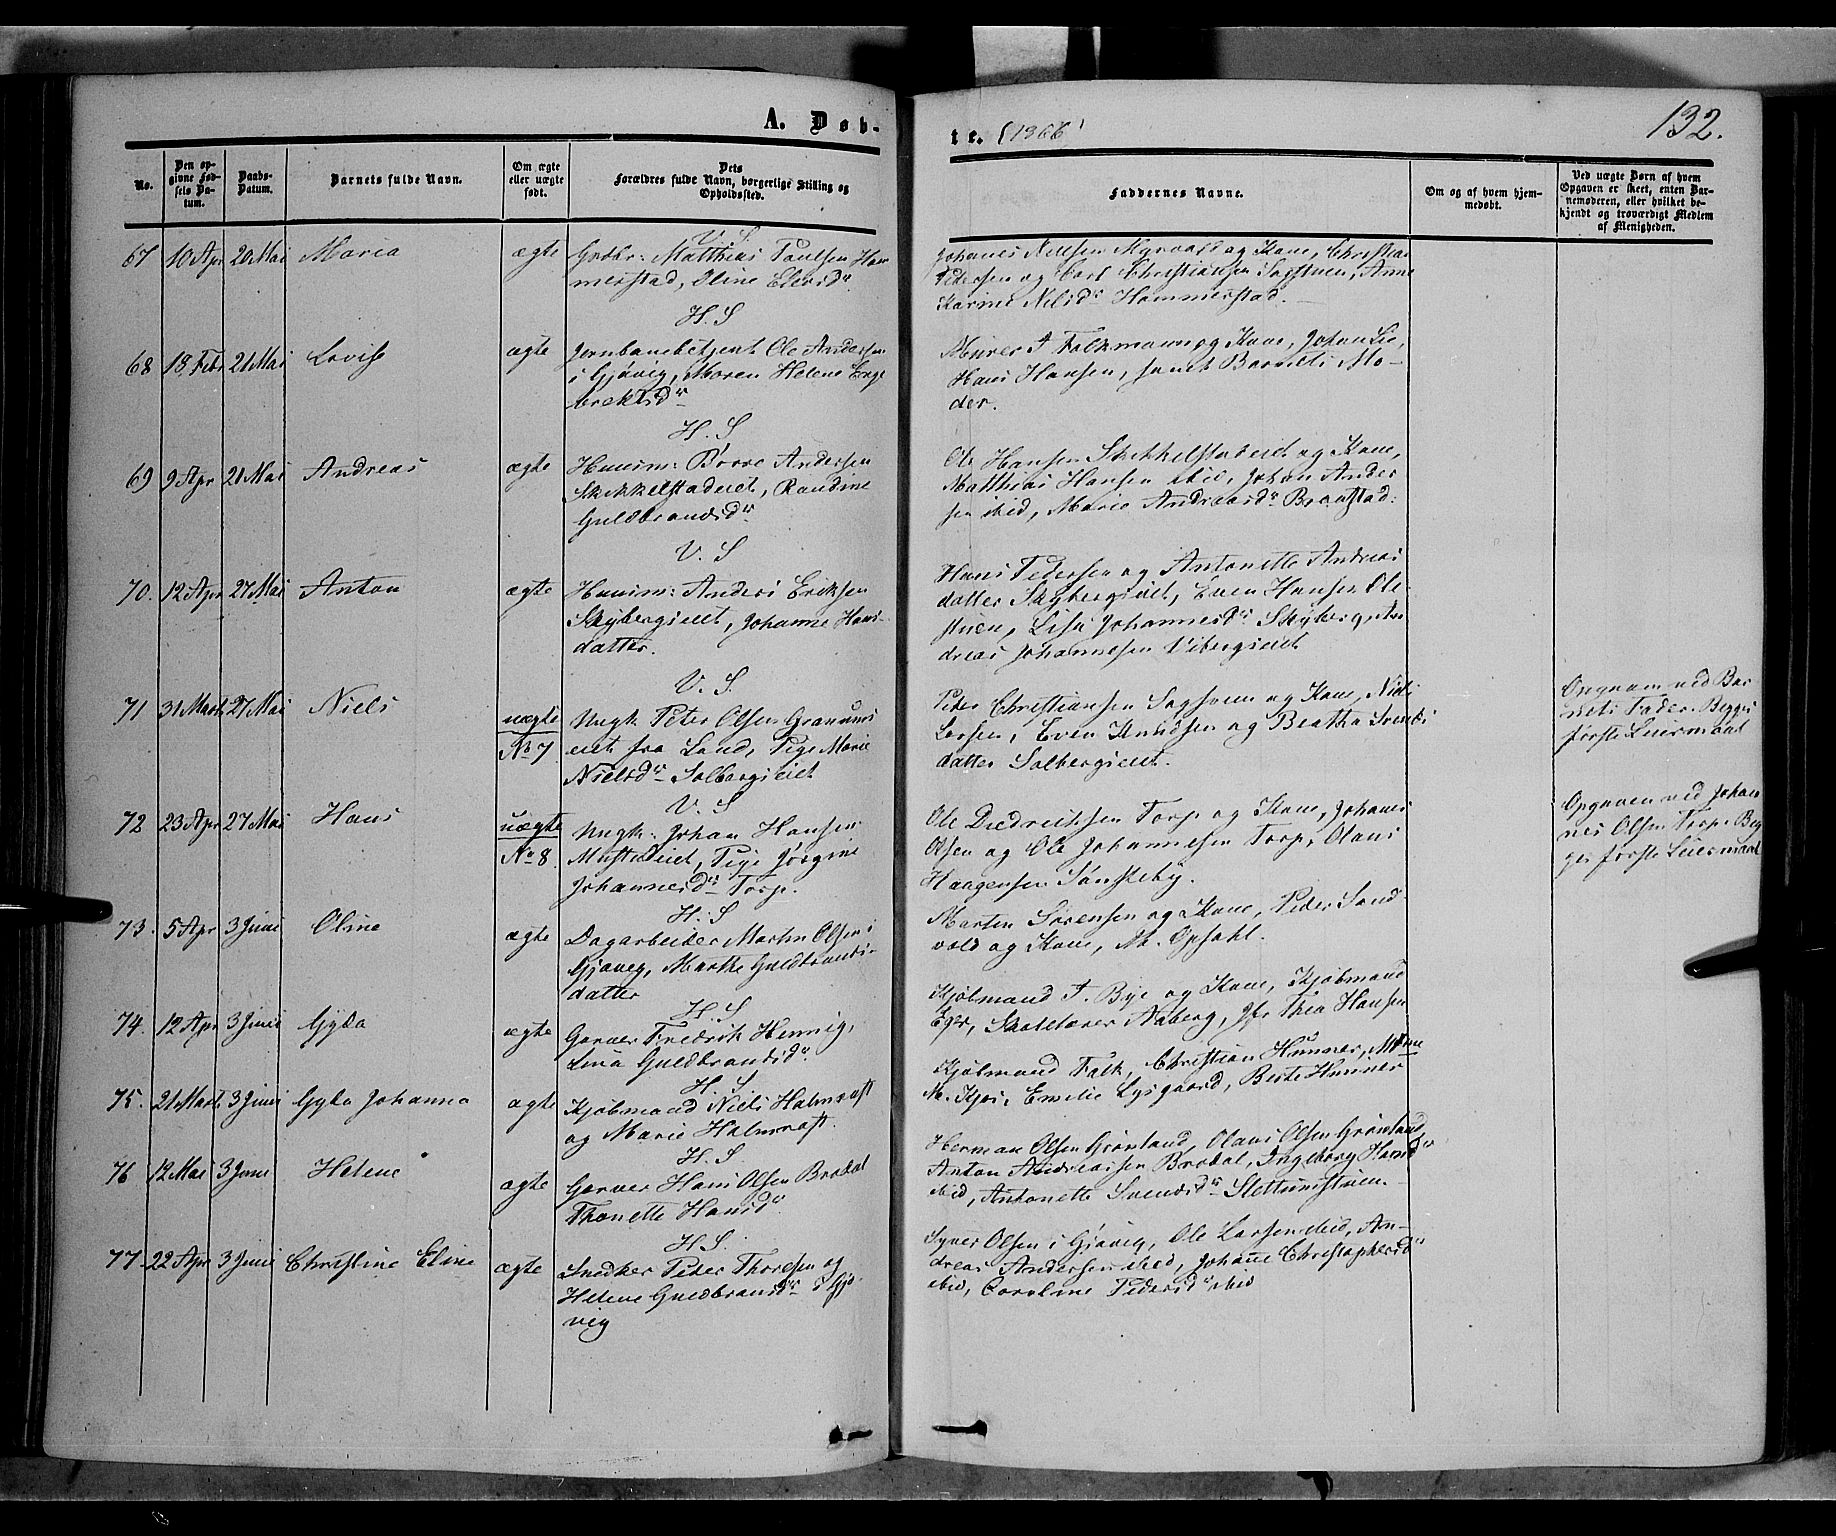 A. Døb-
te. (1866)
132.
No.
Den op-
givne Fød-
sels Da-
tum.
Daabs-
Datum.
Barnets fulde Navn.
Om ægte
eller uægte
født.
Dets
Forældres fulde Navn, borgerlige Stilling og
Opholdssted.
Faddernes Navne.
Om og af hvem hjem-
medøbt.
Ved uægte Børn af hvem
Opgaven er skeet, enten Bar-
nemoderen, eller hvilket be-
kjendt og troværdigt Medlem
af Menigheden.
V. S.
67 10 Apr 20 Mai Maria ægte Grdbr: Matthias Paulsen Ham
merstad, Eline Elevsdr
Johanes Nielsen og Kone, Christian
Pedersen og Carl Christiansen Sagstuen, Anne
Karine Nilsdr Hammerstad.
H. S
68 18 Febr 21 Mai Lovise ægte Jernbanebetjent Ole Andersen
i Gjøvig, Maren Helene Enge
brektsdr
Murer A Falkmann og Kone, Johan Lie,
Hans Hansen, samt Barnets Mo-
der.
H. S
69 9 Apr 21 Mai Andreas ægte Huusm: Børre Andersen
Skikkelstadeiet, Randine
Guldbrandsdr
Ole Hansen Skikkelstadeiet og Kone,
Matthias Hansen ibid, Johan Ander
sen ibid, Marie Andreasdr Braastad.
V. S
70. 12 Apr 27 Mai Anton ægte Huusm: Anders Eriksen
Skybergseiet, Johanne Hans-
datter.
Hans Pedersen og Antonette Andreas
datter Skybergseiet, Even Hansen Ole-
stuen, Lise Johannesdr Skyberg, An
dreas Johannesen Vibergseiet
V. S.
71 31 Marts 27 Mai Niels uægte
No 7
Ungk: Peter Olsen Granums
eiet fra Land, Pige Marie
Nielsdr Solbergseiet
Peter Christiansen Sagsveen og Kone, Niels
Larsen, Even Knudsen og Beathe Svends
datter Solbergseiet.
Opgaven ved Bar
nets Fader. Begges
første Leiermaal
V. S
72 23 Apr 27 Mai Hans uægte
No 8
Ungk: Johan Hansen
Mustadeiet, Pige Jørgine
Johannesdr Torp.
Ole Diedrichsen Torp og Kone, Johanes
Olsen og Ole Johannesen Torp, Olaus
Haagensen Sønsteby.
Opgaven ved Johan
nes Olsen Torp. Beg
ges første Leiermaal
H. S
73. 5 Apr 3 Juni Oline ægte Dagarbeider Martin Olsen i
Gjøvig, Marthe Guldbrands-
datter
Morten Sørensen og Kone, Peder Sand
vold og Kone, M. Opsahl.
H. S
74. 12 Apr 3 Juni Gyda ægte Garver Fredrik Hennig,
Lina Guldbrandsdr
Kjøbmand A. Bye og Kone, Kjøbmand
Eger, Skolelærer Aaberg, Jfr Thea Hansen
H. S
75. 21 Marts 3 Juni Gyda Johanna ægte Kjøbmand Niels Halmrast
og Marie Halmrast.
Kjøbmand Falk, Christian Hunner, Mdme
M. Kjøs, Emelie Lysgaard, Berte Hunner
H. S
76 12 Mai 3 Juni Helene ægte Garver Hans Olsen Brodal
Thonette Hansdr
Herman Olsen Grønland, Olaus Olsen Grønland,
Anton Andreassen Brodal, Ingeborg Hansdr
ibid, Antonette Svendsdr Slettumstuen.
H. S.
77 22 Apr 3 Juni Christine Eline ægte Snedker Peter Thoresen og
Helene Guldbrandsdr i Gjø-
vig
Syver Olsen i Gjøvig, Ole Larsen ibid, An-
dreas Andersen ibid, Johanne Christophersdr
ibid, Caroline Pedersdr ibid